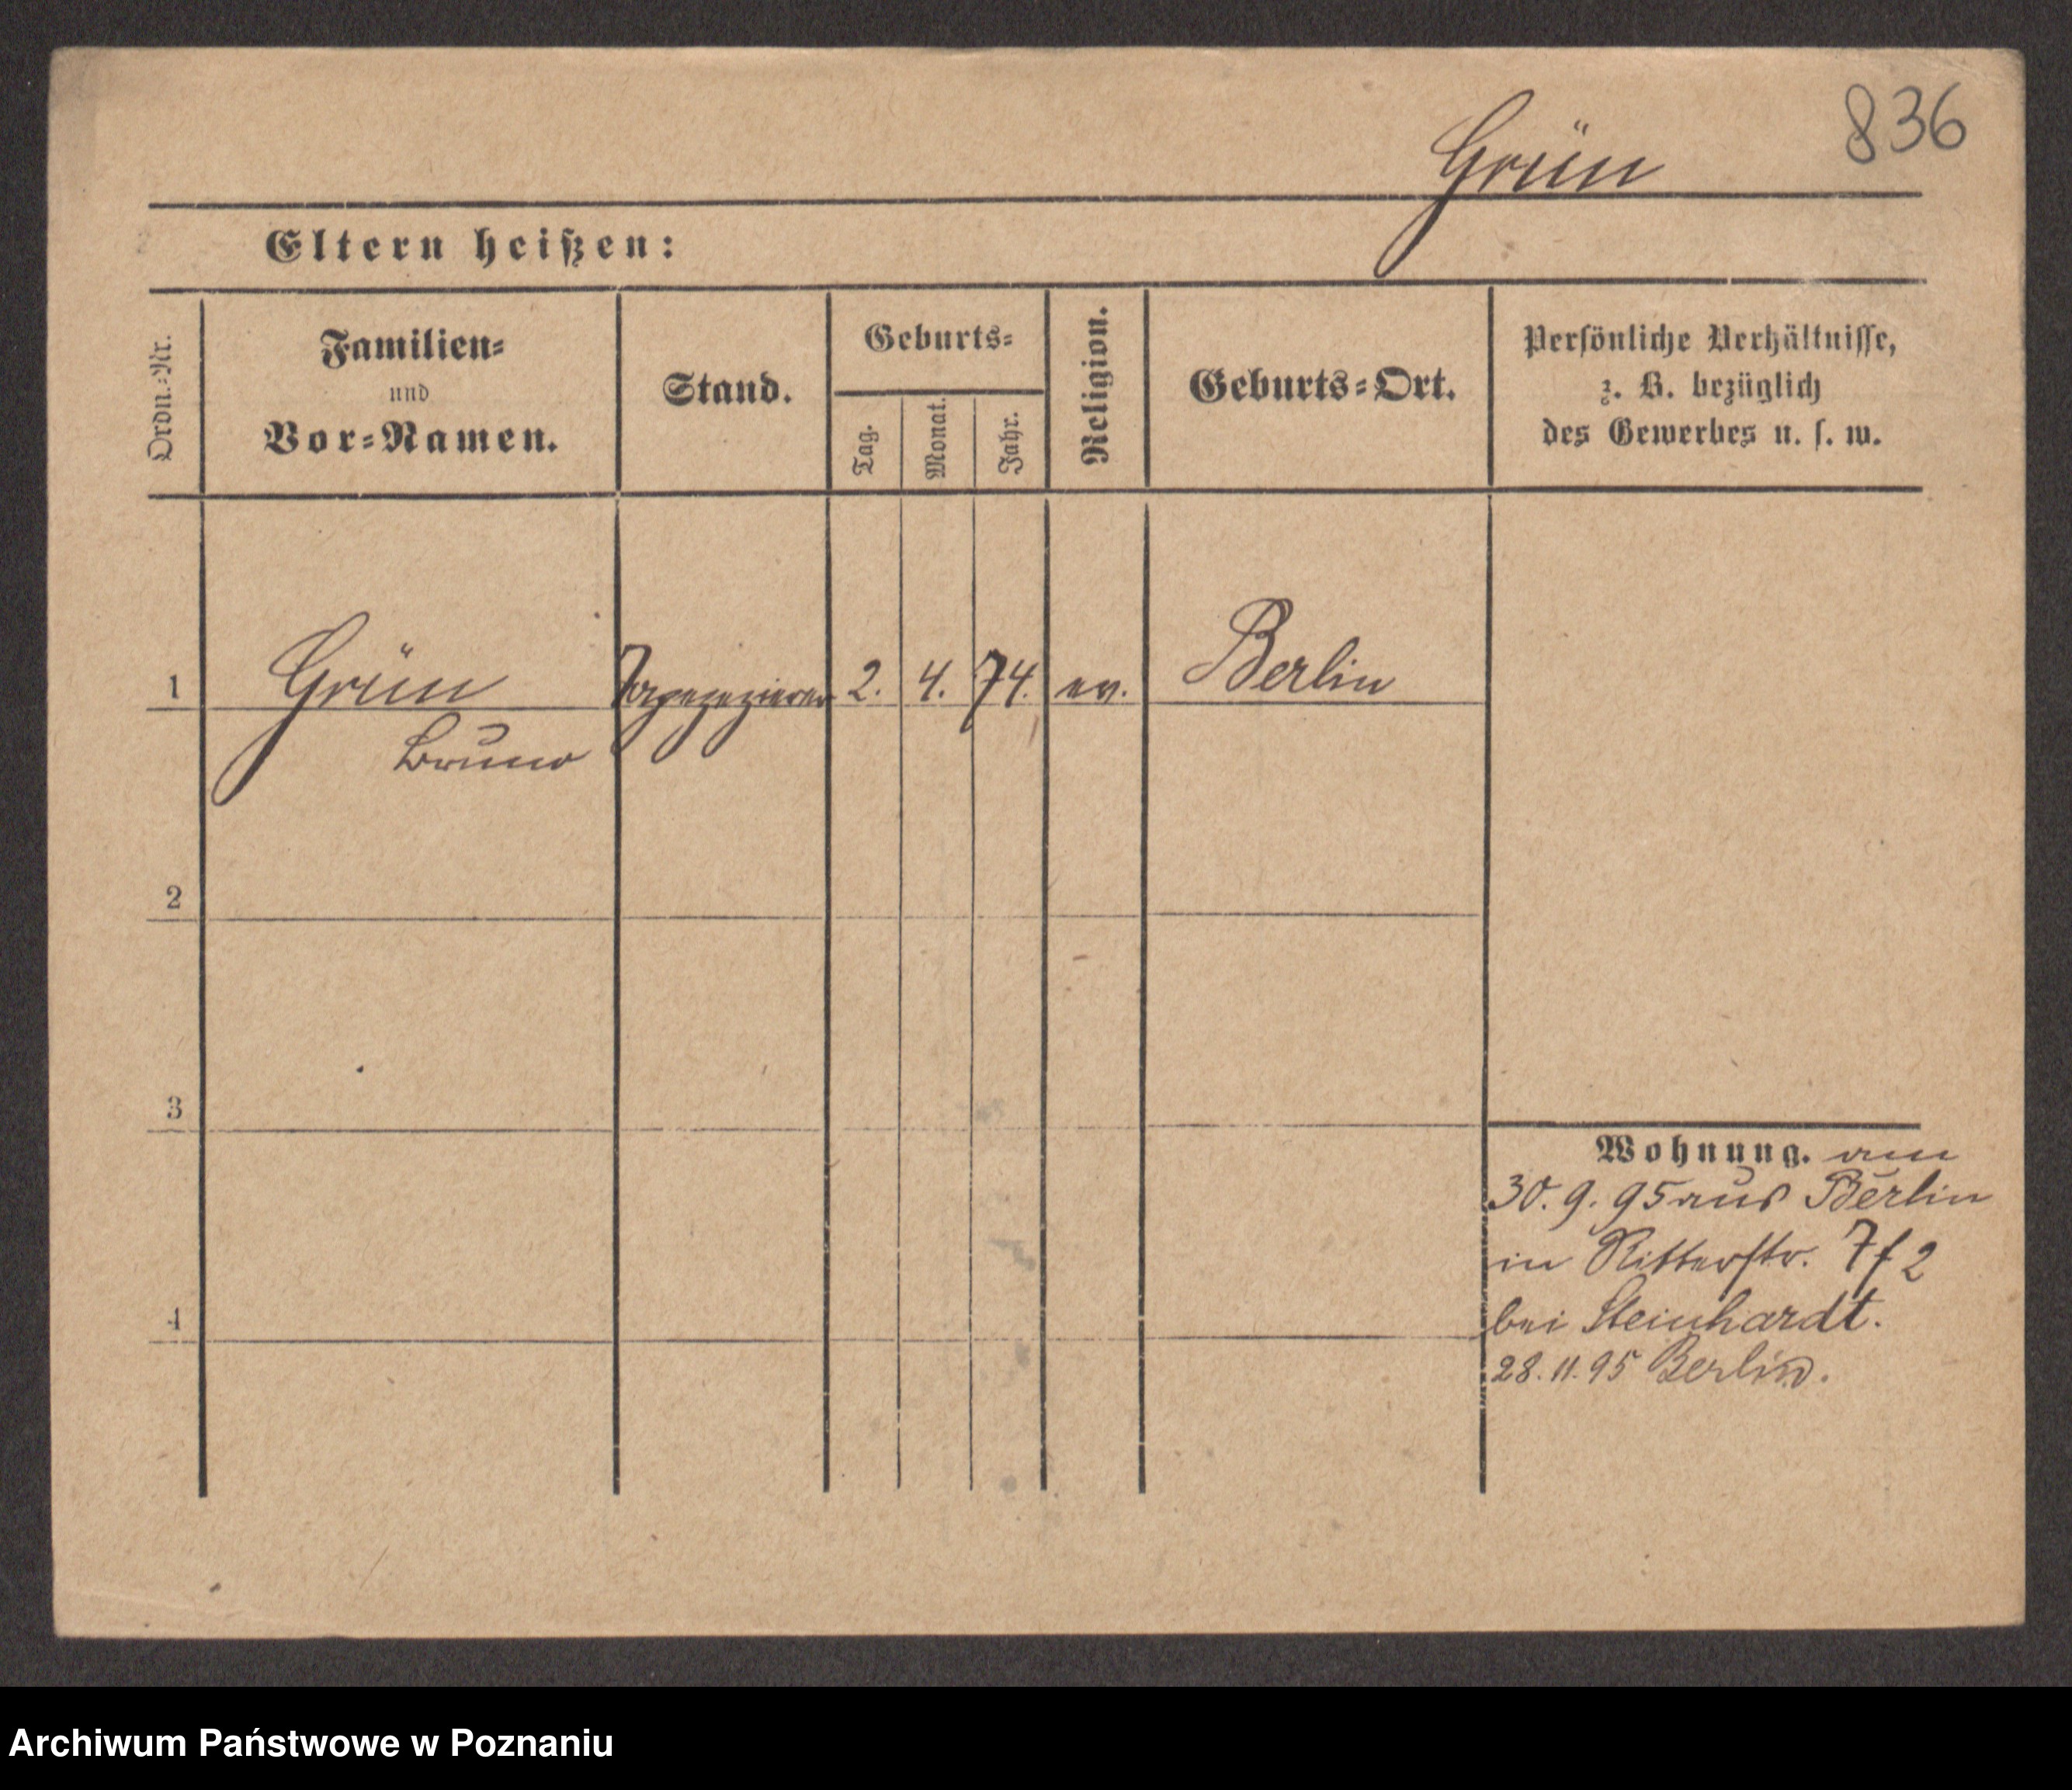 836
Grün
Eltern heißen:
Ordn.-Nr.
Familien-
und
Vor-Namen.
Stand.
Geburts-
Tag.
Monat.
Jahr.
Religion.
Geburts-Ort.
Persönliche Verhältnisse,
z. B. bezüglich
des Gewerbes u. s. w.
1 Grün 2. 4. 74. ev. Berlin
Bruno
2
3
4
Wohnung. am
30. 9. 95 aus Berlin
in Ritterstr. 7f2
bei Steinhardt.
28. 11. 95 Berlin.
Archiwum Państwowe w Poznaniu